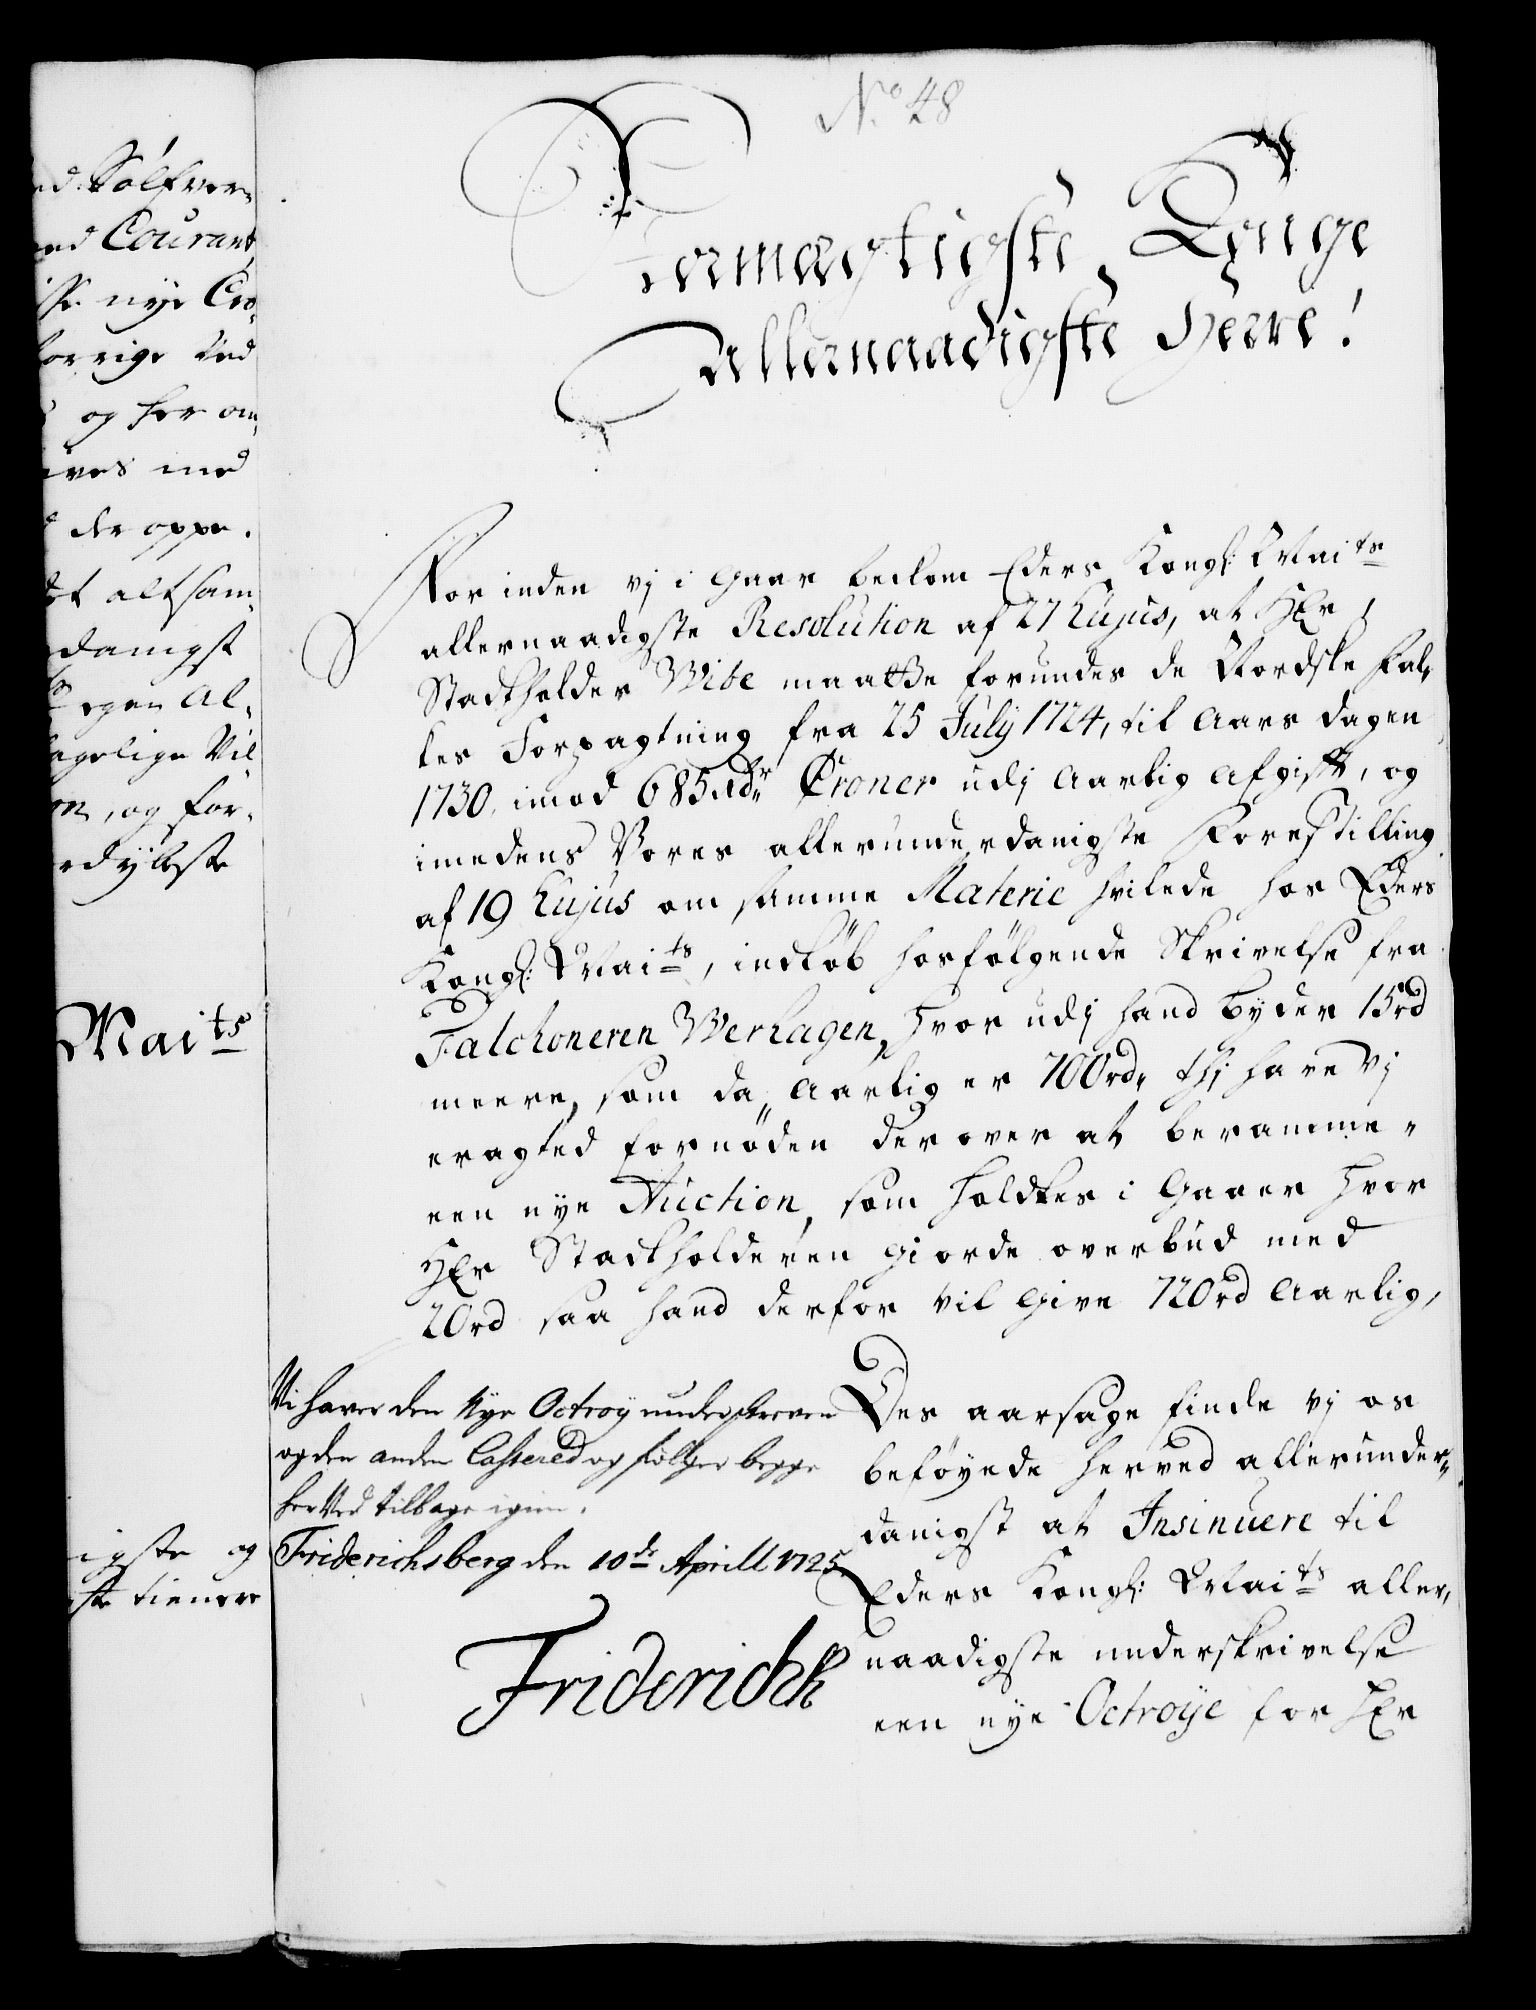 No 48
Stormægtigste Konge
allernaadigste Herre!
For inden vj i Gaar bekom Eders Kongl: Maits
allernaadigste Resolution af 27 hujus, at Hr
Stadtholder Wibe maatte forundes de Nordske Fal-
kes Forpagtning fra 25 July 1724, til Aars dagen
1730, imod 685 rdr Croner udj Aarlig Afgift, og
imedens Vores allerunderdanigste Forestilling
af 19 hujus om samme Materie hvilede hos Eders
Kongl: Maits, indkøb hosfølgende Skrivelse fra
Falchoneren Werhagen, hvor udj hand byder 15rd
meere, som da Aarlig er 700rd, thj have vj
eragted fornøden derover at beramme
een nye Auction, som holdtes i Gaaer hvor
Hr Stadtholderen giorde overbud med
20rd saa hand derfor vil give 720rd Aarlig,
Des aarsage finde vj os
beføyede herved allerunder-
danigst at Insinuere til
Eders Kongl: Maits aller-
naadigste underskrivelse
een nye Octroye for Hr
Vi haver den Nye Octroy underskreven
og den anden Cassered og følger begge
her Ved tilbage igien.
Friderichsberg den 10de Aprill 1725.
Friderich R
ed Sölfver-
Courant
nye Cro-
forrige
og her om
med
der oppe.
altsam-
danigst
egen Al-
Vil
og for-
rdybeste
Maits
igste og
tienere